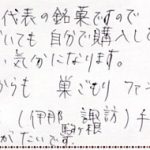 代表の銘菓ですので
いても自分で購入して
い気分になります。
からも 巣ごもり ファン
(伊那 駒ヶ根 諏訪) 手
がたいです。